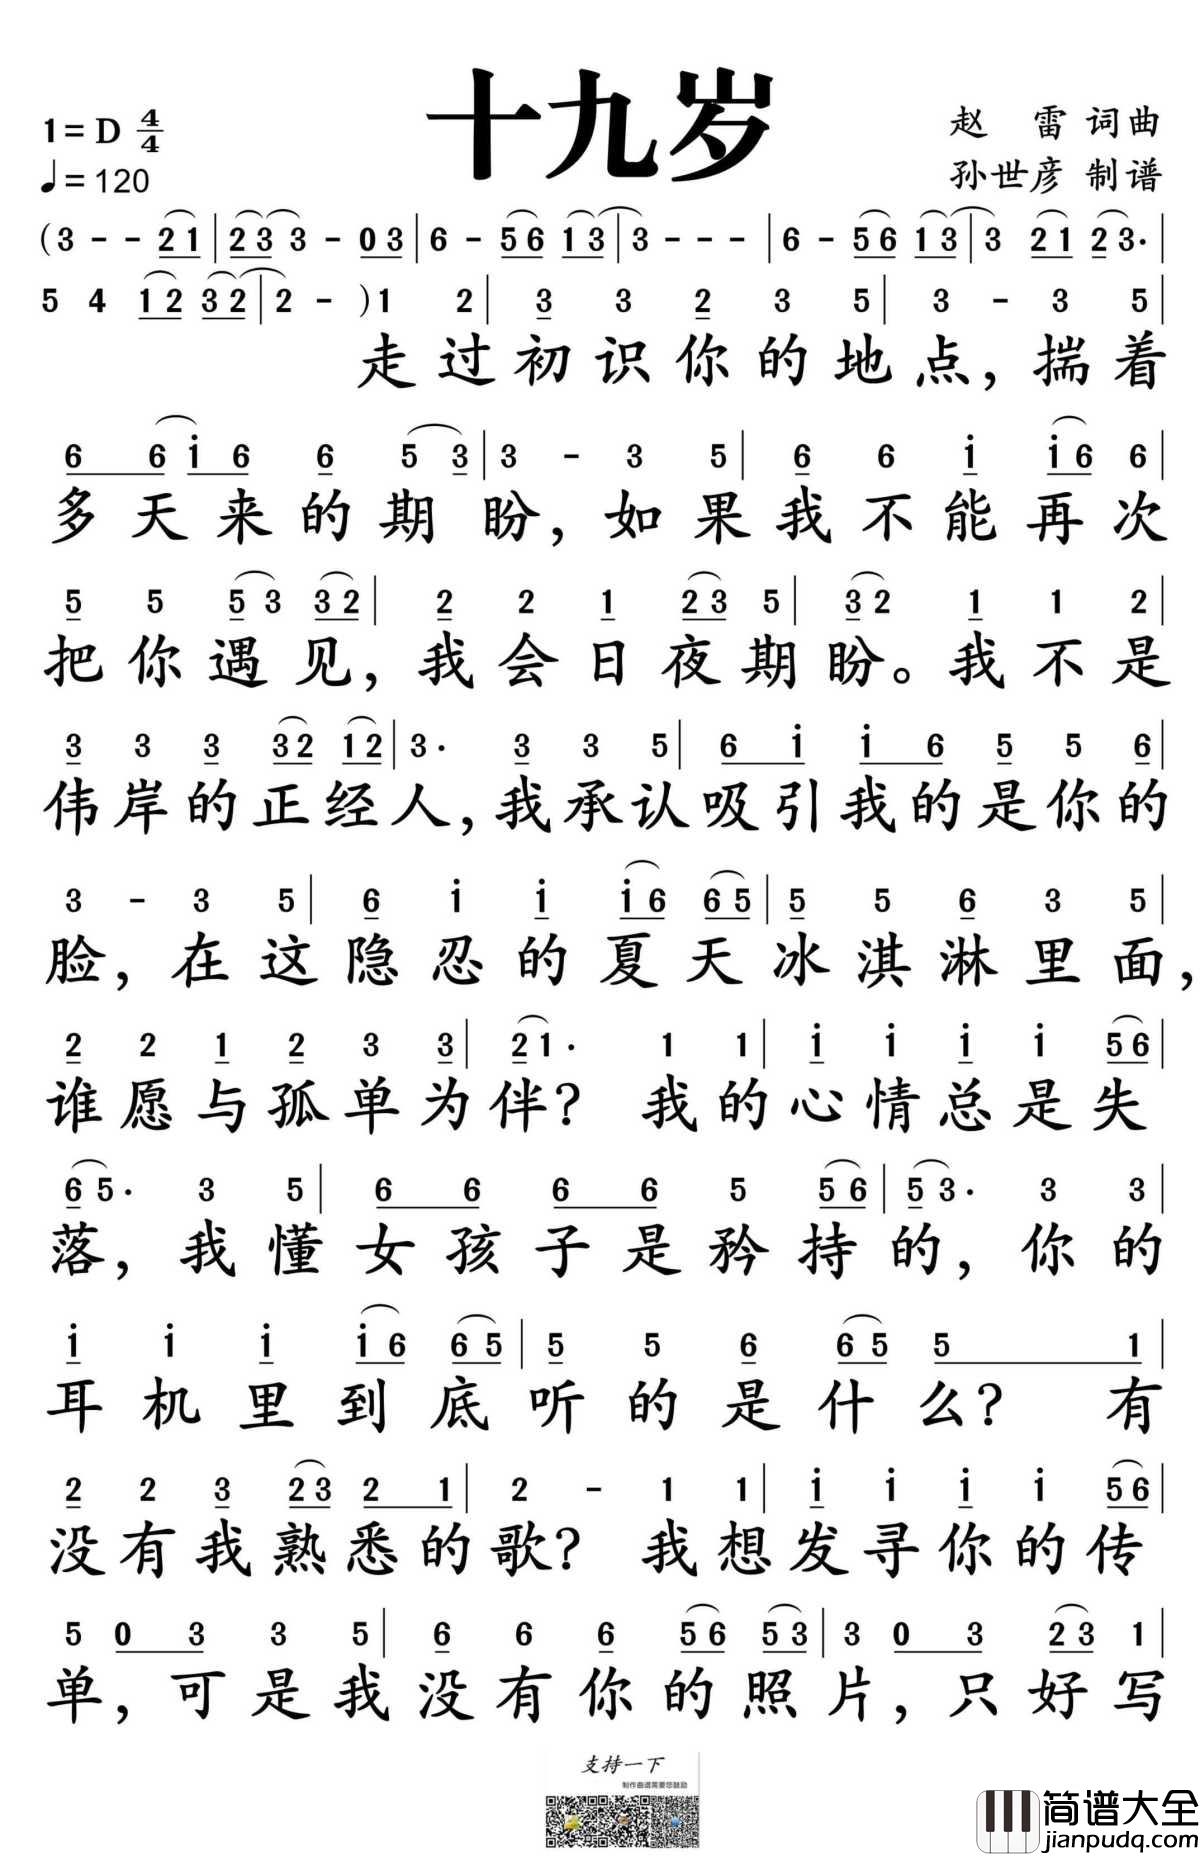 十九岁
1=D 4/4
♩=120
赵 雷 词曲
孙世彦 制谱
(3 - - 2 1 | 2 3 3 - 0 3 | 6 - 5 6 1 3 | 3 - - - | 6 - 5 6 1 3 | 3 2 1 2 3· |
5 4 1 2 3 2 | 2 - ) 1 2 | 3 3 2 3 5 | 3 - 3 5 |
走过初识你的地点，揣着
6 6 i 6 6 5 3 | 3 - 3 5 | 6 6 i i 6 6 |
多天来的期盼，如果我不能再次
5 5 5 3 3 2 | 2 2 1 2 3 5 | 3 2 1 1 2 |
把你遇见，我会日夜期盼。我不是
3 3 3 3 2 1 2 | 3· 3 3 5 | 6 i i 6 5 5 6 |
伟岸的正经人，我承认吸引我的是你的
3 - 3 5 | 6 i i i 6 6 5 | 5 5 6 3 5 |
脸，在这隐忍的夏天冰淇淋里面，
2 2 1 2 3 3 | 2 1· 1 1 | i i i i 5 6 |
谁愿与孤单为伴？我的心情总是失
6 5· 3 5 | 6 6 6 6 5 5 6 | 5 3· 3 3 |
落，我懂女孩子是矜持的，你的
i i i i 6 6 5 | 5 5 6 6 5 5 1 |
耳机里到底听的是什么？有
2 2 3 2 3 2 1 | 2 - 1 1 | i i i i 5 6 |
没有我熟悉的歌？我想发寻你的传
5 0 3 3 5 | 6 6 6 5 6 5 3 | 3 0 3 2 3 1 |
单，可是我没有你的照片，只好写
支持一下
制作曲谱需要您鼓励
简谱大全
jianpudq.com